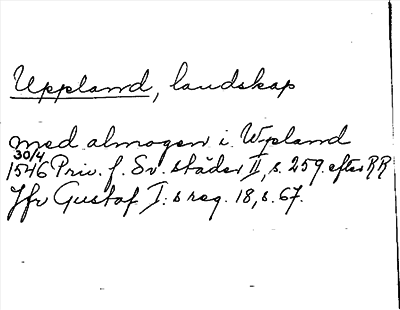 Uppland, landskap
med almogen i Wpland
30/4
1546 Priv. f. Sv. städer II, s. 259. efter RR
Jfr Gustaf I:s reg. 18, s. 67.